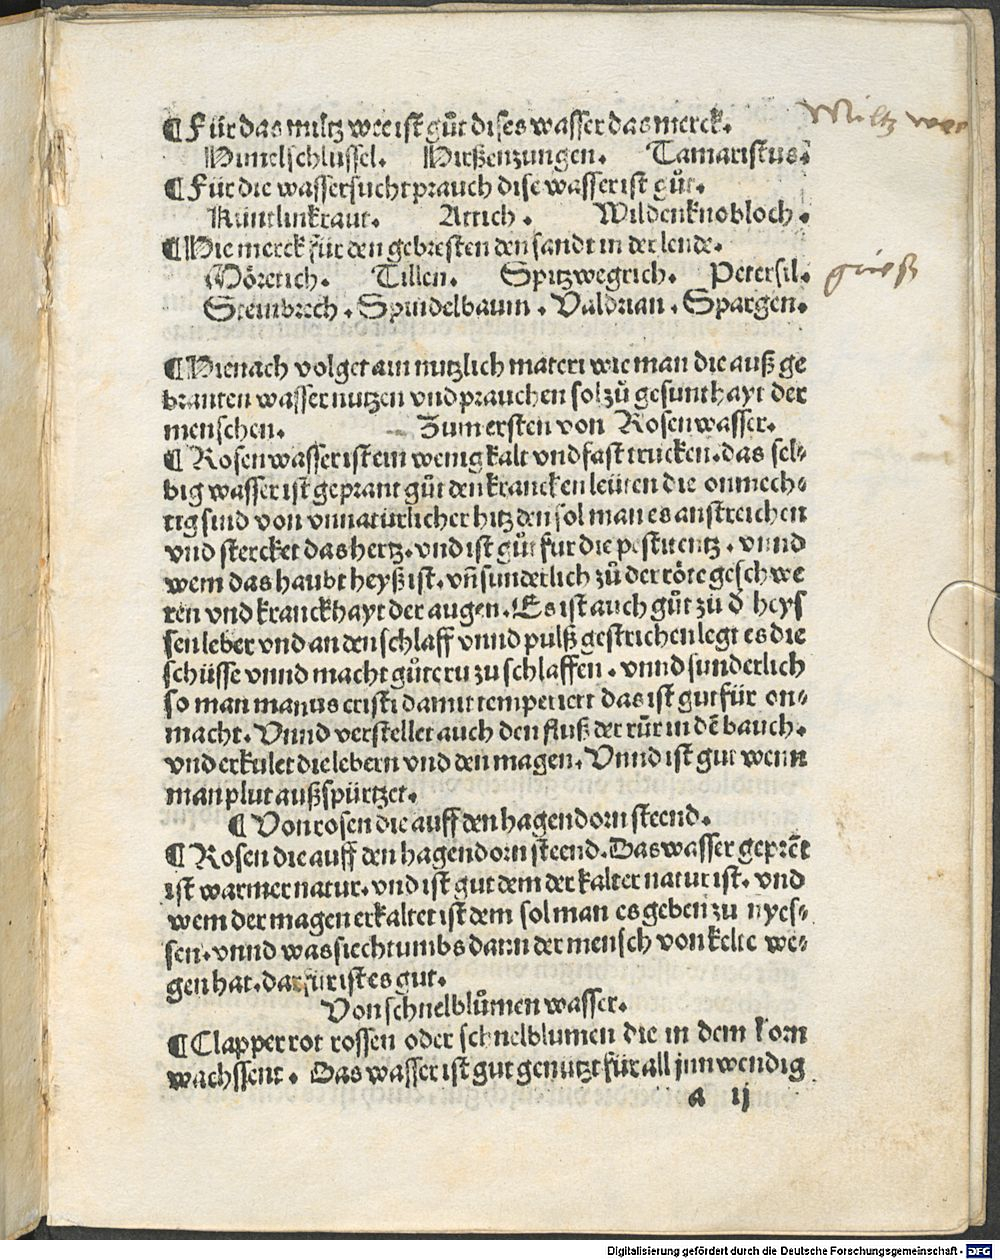 ¶ Für das miltz wee ist gůt dises wasser das merck.
Miltz wee
Himelschlüssel. Hirßenzungen. Tamariscus.
¶ Für die wassersucht prauch dise wasser ist gůt.
Küntlinkraut. Attich. Wildenknobloch.
¶ Hie merck für den gebresten den sandt in der lende.
Möretich. Tillen. Spitzwegrich. Petersil.
grieß
Steinbrech. Spindelbaum. Valdrian. Spargen.
¶ Hienach volget ain nutzlich materi wie man die auß ge
branten wasser nutzen vnd prauchen sol zů gesunthayt der
menschen. Zum ersten von Rosenwasser.
¶ Rosenwasser ist ein wenig kalt vnd fast trucken. das sel⸗
big wasser ist geprant gůt den krancken leüten die onmech⸗
tig sind von vnnatürlicher hitz den sol man es anstreichen
vnd stercket das hertz. vnd ist gůt für die pestilentz. vnnd
wem das haubt heyß ist. vñ sunderlich zů der röte geschwe
ren vnd kranckhayt der augen. Es ist auch gůt zu d̕ heys
sen leber vnd an den schlaff vnnd pulß gestrichen legt es die
schüsse vnnd macht gůte ru zu schlaffen. vnnd sunderlich
so man manus cristi damit temperiert das ist gut für on⸗
macht. Vnnd verstellet auch den fluß der růr in dē bauch.
vnd erkulet die lebern vnd den magen. Vnnd ist gut wenn
man plut außspürtzet.
¶ Von rosen die auff den hagendorn steend.
¶ Rosen die auff den hagendorn steend. Das wasser geprēt
ist warmer natur. vnd ist gut dem der kalter natur ist. vnd
wem der magen erkaltet ist dem sol man es geben zu nyes⸗
sen. vnnd was siechtumbs dann der mensch von kelte we⸗
gen hat. darfür ist es gut.
Von schnelblůmen wasser.
¶ Clapper rot rossen oder schnelblumen die in dem korn
wachssent. Das wasser ist gut genutzt für all jnnwendig
a ij
Digitalisierung gefördert durch die Deutsche Forschungsgemeinschaft - DFG